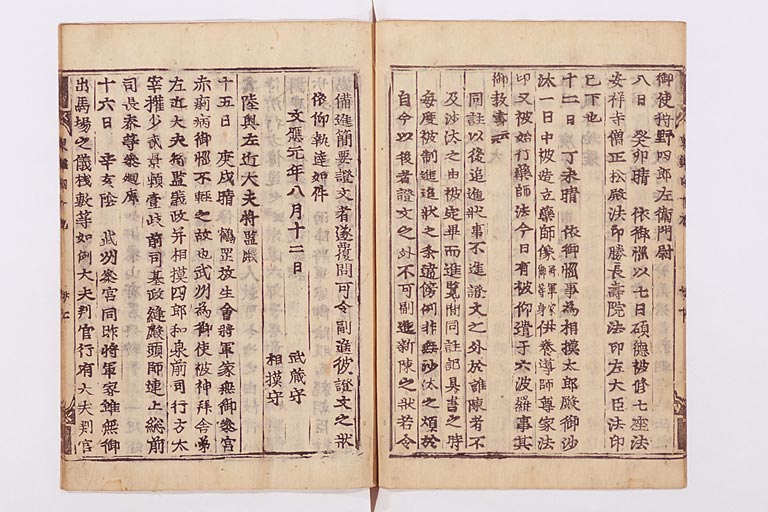 御使狩野四郎左衛門尉
八日 癸卯晴 依御惱以七日碩德被修七座法
安祥寺僧正松殿法印勝長壽院法印左大臣法印
已下也
十二日 丁未晴 依御惱事為相摸太郎殿御沙
汰一日中被造立藥師像將軍家御等身伊卷導師尊家法
印又被始行藥師法今日有被仰遣于六波羅事其
御教書云
同註以後追進狀事不進證文之外於誰陳者不
及沙汰之由被定畢而進覧問同註記具書之時
每度被制進進狀之条適傍例非無沙汰之煩於
自今以後者證文之外不可副進新陳之狀若令
備進簡要證文者遂覆問可令副進彼證文之狀
依仰執達如件
文應元年八月十二日
武蔵守
相摸守
陸奥左近大夫將監殿
十五日 庚戌晴 鶴罡放生會將軍家無御參宮
赤痢病御惱不輕之故也武州為御使被神拜舎弟
左近大夫將監義政并相摸四郎和泉前司行方太
宰權少貳景頼壹岐前司基政縫殿頭師連上総前
司長泰等參廻廊
十六日 辛亥陰 武州參宮同昨將軍家雖無御
出馬場之儀栈敷等如例大夫判官行有大夫判官